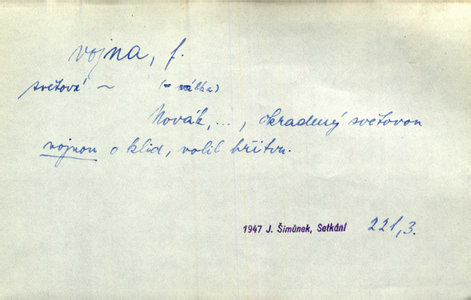 vojna, f.
světová ~ (= válka)
Novák, ..., okradený světovou
vojnou o klid, volil břitvu.
1947 J. Šimůnek, Setkání 221,3.